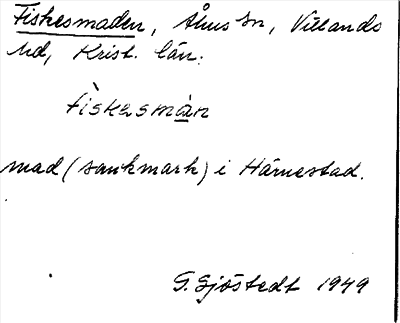 Fiskesmaden, Åhus sn, Villands
hd, Krist. län.
fìskasmàn
mad (sankmark) i Härnestad.
G. Sjöstedt 1949